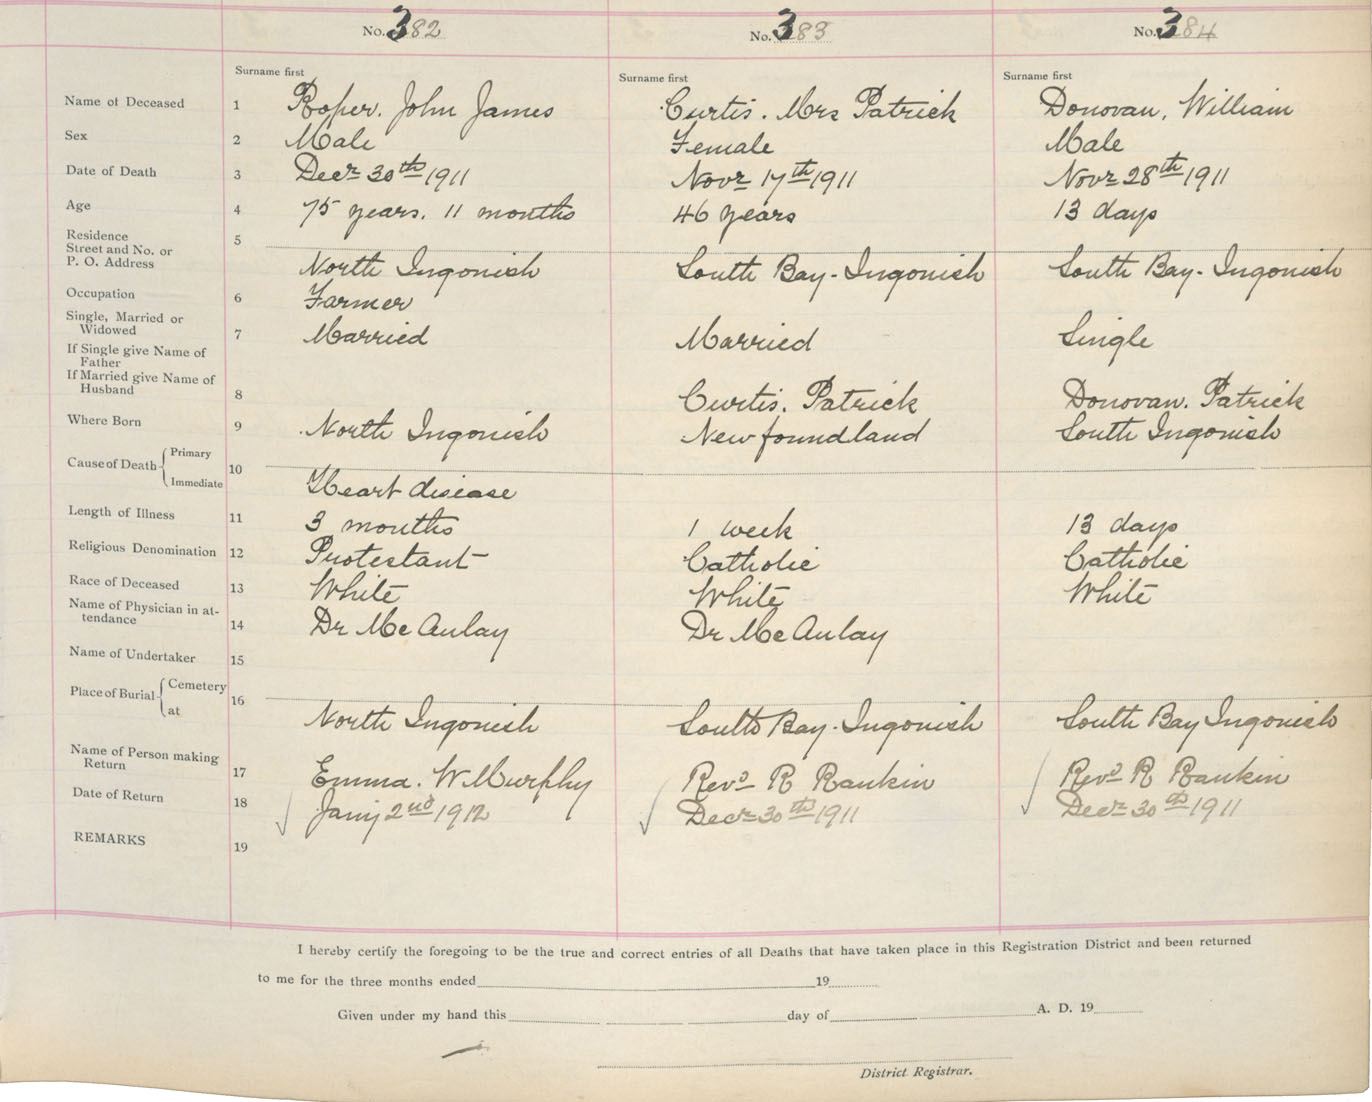 No. 382 No. 383 No. 384
Surname first Surname first Surname first
Name of Deceased 1 Roper, John James Curtis. Mrs Patrick Donovan, William
Sex 2 Male Female Male
Date of Death 3 Decr 30th 1911 Novr 17th 1911 Novr 28th 1911
Age 4 75 years. 11 months 46 years 13 days
Residence
Street and No. or 5
P. O. Address North Ingonish South Bay-Ingonish South Bay-Ingonish
Occupation 6 Farmer
Single, Married or
Widowed 7 Married Married Single
If Single give Name of
Father
If Married give Name of
Husband 8 Curtis. Patrick Donovan. Patrick
Where Born 9 North Ingonish Newfoundland South Ingonish
Cause of Death Primary 10
Immediate Heart disease
Length of Illness 11 3 months 1 week 13 days
Religious Denomination 12 Protestant Catholic Catholic
Race of Deceased 13 White White White
Name of Physician in at-
tendance 14 Dr McAulay Dr McAulay
Name of Undertaker 15
Place of Burial Cemetery 16
at North Ingonish South Bay-Ingonish South Bay Ingonish
Name of Person making
Return 17 Emma. W. Murphy Revd R Rankin Revd R Rankin
Date of Return 18 Jany 2nd 1912 Decr 30th 1911 Decr 30th 1911
REMARKS 19
I hereby certify the foregoing to be the true and correct entries of all Deaths that have taken place in this Registration District and been returned
to me for the three months ended 19
Given under my hand this day of A. D. 19
District Registrar.